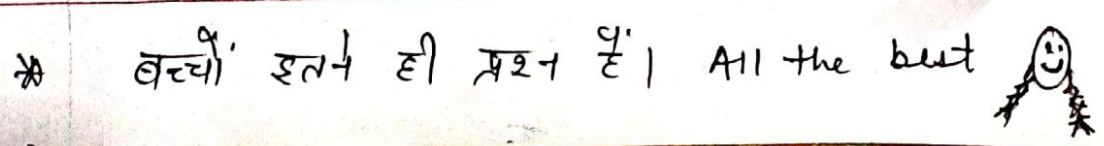 * बच्चों इतने ही प्रश्न हैं। All the best